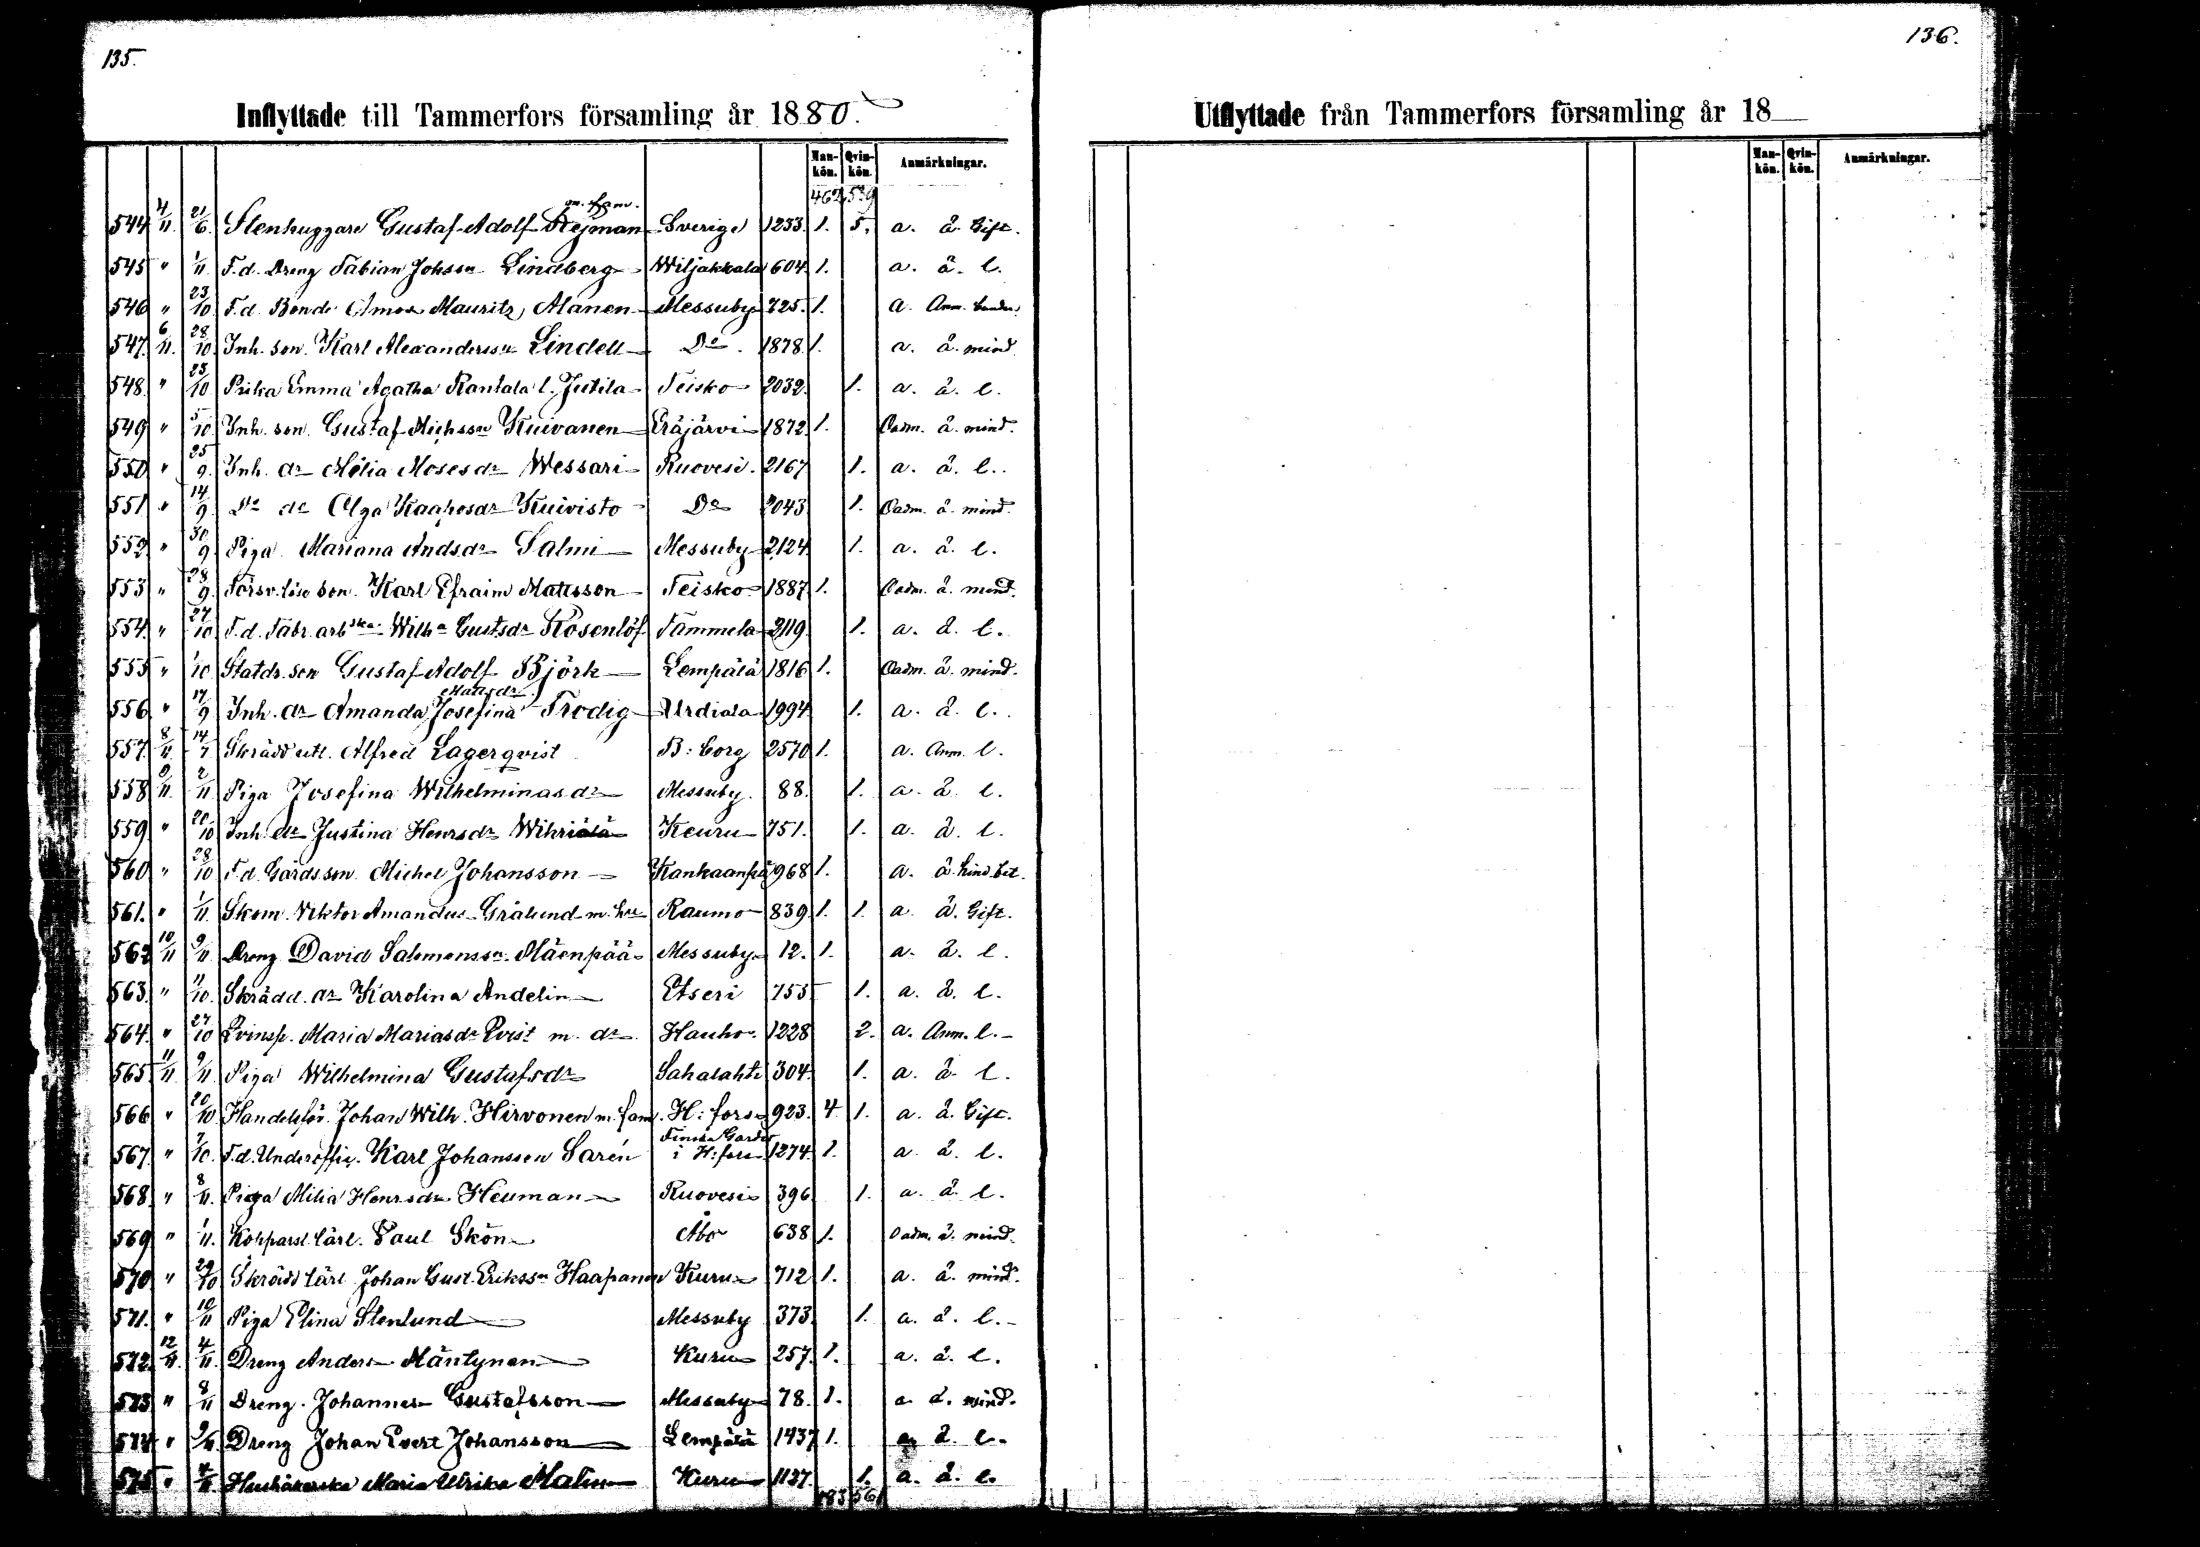 135.
Inflyttade till Tammerfors församling år 1880.
Man-kön. Qvin-kön. Anmärkningar.
462 539
544 4/11. 21/6. Stenhuggare Gustaf Adolf Stejman m. fam. Sverige 1233. 1. 5. a. å. Gift.
545 " 1/11. F.d. Dreng Fabian Johssn Lindberg Wiljakkala 604. 1. a. å. l.
546 " 23/10. F.d. Bonde Amos Mauritz Alanen Messuby 725. 1. a. Anm.
547. 6/11. 28/10. Inh. son. Karl Alexanderssn Lindell Do. 1878. 1. a. å. mind.
548. " 23/10 Pika Emma Agatha Rantala l. Jutila Teisko 2032. 1. a. å. l.
549 " 5/10. Inh. son. Gustaf Michssn Kuivanen Eräjärvi 1872. 1. Oadm. å. mind.
550 " 25/9. Inh. dr Melia Mosesdr Wessari Ruovesi. 2167 1. a. å. l.
551 " 14/9. Do dr Olga Kaaposdr Kuivisto Do 2043 1. Oadm. å. mind.
552 " 30/9 Piga Mariana Andsdr Salmi Messuby 2124 1. a. å. l.
553 " 28/9. Försv. löse son. Karl Efraim Mattsson Teisko 1887. 1. Oadm. å. mind.
554. " 27/10 F.d. Fabr. arbska Wilha Gustsdr Rosenlöf Tammela 2119. 1. a. å. l.
555 " 1/10. Statdr. son Gustaf Adolf Björk Lempälä 1816 1. Oadm. å. mind.
556 " 17/9 Inh. dr Amanda Josefina Mattsdr Frodig Urdiala 1994 1. a. å. l.
557. 8/11. 14/7 Skrädd utl. Alfred Lagerqvist B:borg 2570 1. a. Anm. l.
558 9/11. 2/11. Piga Josefina Wilhelminasdr Messuby. 88. 1. a. å. l.
559 " 20/10 Inh. dr Justina Henrsdr Wihriälä Keuru 751. 1. a. å. l.
560 " 28/10 F.d. Gårdsson. Michel Johansson Kankaanpä 968 1. a. å hind. bet.
561. " 1/11. Skom. Viktor Amandus Grålund m. hu Raumo 839 1. 1. a. å. Gift.
562 10/11 9/11. Dreng David Salomonssn. Mäenpää Messuby 12. 1. a. å. l.
563. " 11/10. Skrädd. dr Karolina Andelin Etseri 755 1. a. å. l.
564. " 27/10 Qvinsp. Maria Mariasdr Qvist m. dr Hauho 1228 2. a. Anm. l.
565 11/11 9/11. Piga Wilhelmina Gustafsdr Sahalahti 304. 1. a. å. l.
566 " 20/10 Handelsför. Johan Wilh. Hirvonen m. fam. H:fors 923. 4 1. a. å. Gift.
567. " 7/10. F.d. Underoffic. Karl Johansson Sarén Finska Gardet i H:fors 1274. 1. a. å. l.
568. " 8/11. Piga Milia Henrsdr Heuman Ruovesi 396 1. a. å. l.
569 " 1/11. Kopparsl. lärl. Paul Skön Åbo 638 1. Oadm. å. mind.
570 " 29/10 Skrädd lärl Johan Gust. Erikssn Haapanen Kuru 712 1. a. å. mind.
571. " 10/11 Piga Elina Stenlund Messuby 373. 1. a. å. l.
572 12/11. 4/11. Dreng Anders Mäntynen Kuru 257. 1. a. å. l.
573 " 8/11 Dreng. Johannes Gustafsson Messuby 78. 1. a. å. mind.
574 " 9/11. Dreng Johan Evert Johansson Lempälä 1437 1. a. å. l.
575 " Hushållerska Maria Ulrika Malin Kuru 1137. 1. a. å. l.
483 561
136.
Utflyttade från Tammerfors församling år 18
Man-kön. Qvin-kön. Anmärkningar.